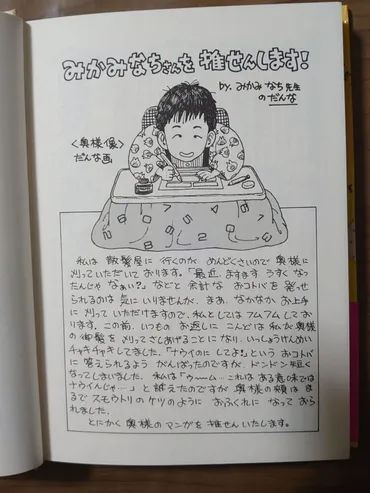 みかみなちさんを推せんします!
by. みかみ なち 先生
のだんな
<奥様像>
だんな画
私は 散髪屋に 行くのが めんどくさいので 奥様に
刈っていただいて おります。「最近、ますます うすくなっ
たんじゃ なぁい?」などと 余計な おコトバを 発せ
られるのは 気に いりませんが、まあ、なかなか お上手
に 刈って いただけますので、私としては フムフムして お
ります。この前、いつもの お返しに こんどは 私が 奥様
の 御髪を 刈って さしあげることに なり、いっしょうけんめい
チャキチャキしてました。「ナウイのに してよ!」という おコトバ
に 答えられるよう がんばったのですが、ドンドン 短く
なってしまいました。私は「ウーーム…これは ある意味では
ナウイんじゃ…」と 訴えたのですが 奥様の 頬は ま
るで スモウトリの ケツのように おふくれに なって おら
れました。
とにかく 奥様の マンガを 推せん いたします。